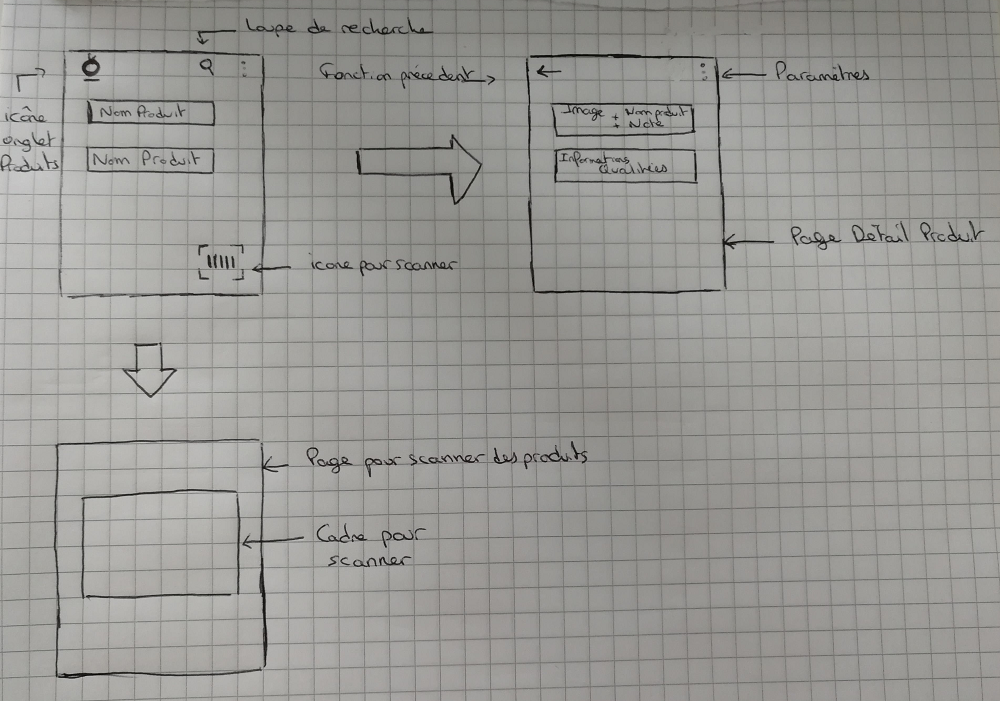 Loupe de recherche
icône
onglet
Produits
Nom Produit
Nom Produit
icone pour scanner
Fonction précedent
Paramètres
Image + Nom produit
+ Note
Informations
Qualitées
Page Détail Produit
Page pour scanner des produits
Cadre pour
scanner